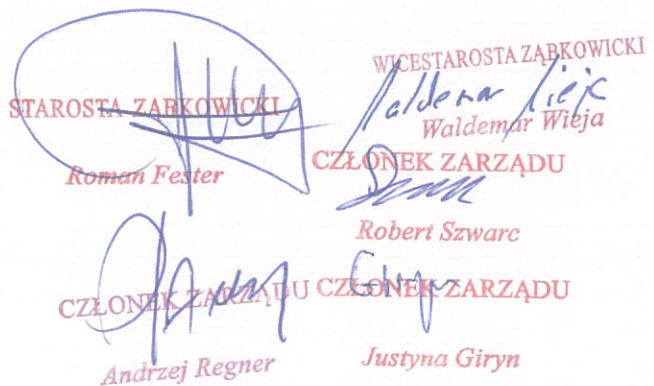 STAROSTA ZĄBKOWICKI
Roman Fester
WICESTAROSTA ZĄBKOWICKI
Waldemar Wieja
Waldemar Wieja
CZŁONEK ZARZĄDU
Robert Szwarc
CZŁONEK ZARZĄDU
Andrzej Regner
CZŁONEK ZARZĄDU
Justyna Giryn